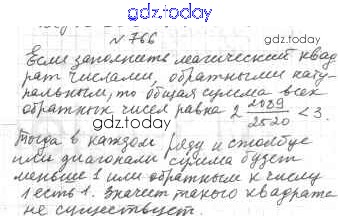 gdz.today
№766
gdz.today
Если заполнить магический квад
рат числами, обратными нату-
ральным, то общая сумма всех
обратных чисел равна 2 2089/2520 < 3.
gdz.today
Тогда в каждом ряду и столбце
или диагонали сумма будет
меньше 1 или обратным к числу
1 есть 1. Значит такого квадрата
не существует.
gdz.today